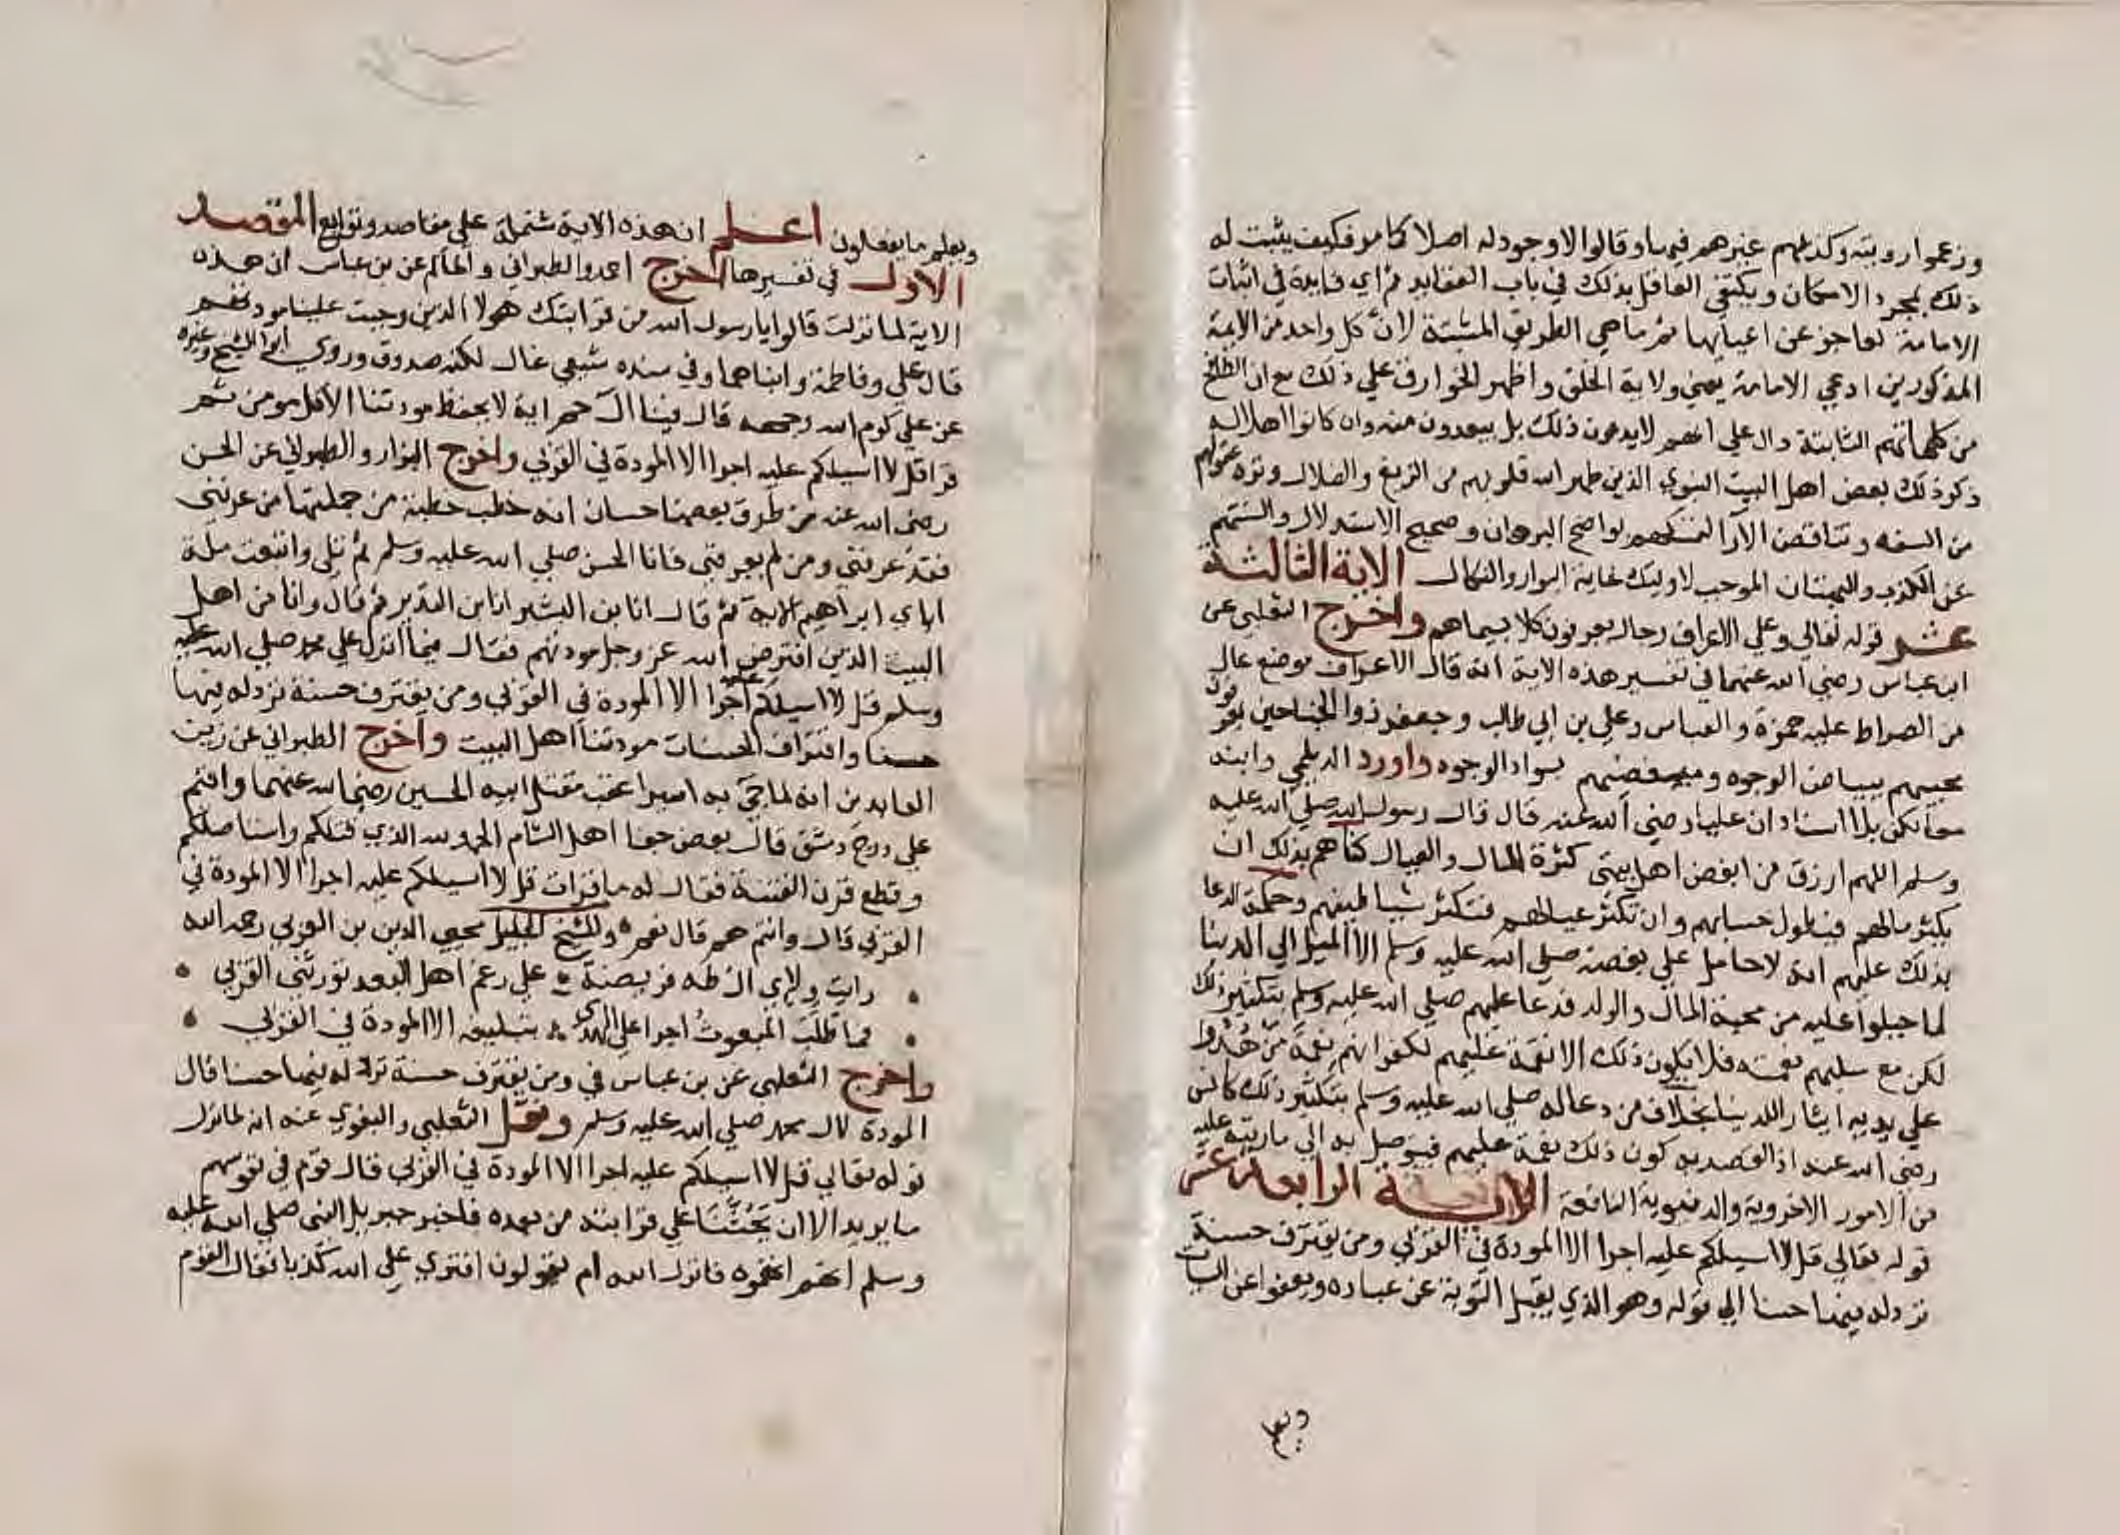 وزعموا رويته وكذبهم غيرهم فيها وقالوا لا وجود له اصلا كما مر فكيف يثبت له
ذلك بمجرد الامكان ويكتفي العاقل بذلك في باب العقايد ثم اي فايدة في اثبات
الامامة لعاجز عن اعبايها ثم ما هي الطريق المثبتة لان كل واحد من الايمة
المذكورين ادعي الامامة بمعني ولاية الخلق واظهر الخوارق علي ذلك مع ان الطافح
من كلماتهم الثابتة دال علي انهم لا يدعون ذلك بل يبعدون منه وان كانوا اهلا له
ذكر ذلك بعض اهل البيت النبوي الذين طهر الله قلوبهم من الزيغ والضلال ونزه عقولهم
من السفه وتناقض الارا لتمسكهم بواضح البرهان وصحيح الاستدلال والسنتهم
عن الكذب والبهتان الموجب لاوليك غاية البوار والنكال الاية الثالثة
عشر قوله تعالي وعلي الاعراف رجال يعرفون كلا بسيماهم واخرج الثعلبي عن
ابن عباس رضي الله عنهما في تفسير هذه الاية انه قال الاعراف موضع عال
من الصراط عليه حمزة والعباس وعلي بن ابي طالب وجعفر ذوا الجناحين يعرفون
محبيهم ببياض الوجوه ومبغضيهم بسواد الوجوه واورد الديلمي وابنه
معا لكن بلا اسناد ان عليا رضي الله عنه قال قال رسول الله صلي الله عليه
وسلم اللهم ارزق من ابغض اهل بيتي كثرة المال والعيال كفاهم بذلك ان
يكثر مالهم فيطول حسابهم وان تكثر عيالهم فتكثر شياطينهم وحكمة الدعا
بذلك عليهم انه لا حامل علي بغضه صلي الله عليه وسلم الا الميل الي الدنيا
لما جبلوا عليه من محبة المال والولد فدعا عليهم صلي الله عليه وسلم بتكثير ذلك
لكن مع سلبهم نعمته فلا يكون ذلك الا نقمة عليهم لكفرانهم نعمة من هدوا
علي يديه ايثارا للدنيا بخلاف من دعا له صلي الله عليه وسلم بتكثير ذلك كانس
رضي الله عنه اذ القصد به كون ذلك نعمة عليهم فيتوصل به الي ما رتبه عليه
من الامور الاخروية والدنيوية النافعة الاية الرابعة عشر
قوله تعالي قل لا اسيلكم عليه اجرا الا المودة في القربي ومن يقترف حسنة
نزد له فيها حسنا الي قوله وهو الذي يقبل التوبة عن عباده ويعفوا عن السيات
ويعلم
ويعلم ما يفعلون اعلم ان هذه الاية شتملة علي مقاصد وتوابع المقصد
الاول في تفسيرها اخرج احمد والطبراني والحاكم عن بن عباس ان هذه
الاية لما نزلت قالوا يا رسول الله من قرابتك هولا الذين وجبت علينا مودتهم
قال علي وفاطمة وابناهما وفي سنده شيعي غال لكنه صدوق وروي ابو الشيخ وغيره
عن علي كرم الله وجهه قال فينا ال حم اية لا يحفظ مودتنا الا كل مومن ثم
قرا قل لا اسيلكم عليه اجرا الا المودة في القربي واخرج البزار والطبراني عن الحسن
رضي الله عنه من طرق بعضها حسان انه خطب خطبة من جملتها من عرفني
فقد عرفني ومن لم يعرفني فانا الحسن صلي الله عليه وسلم ثم تلي واتبعت ملة
اباي ابراهيم الاية ثم قال انا بن البشير انا بن النذير ثم قال وانا من اهل
البيت الذين افترض الله عز وجل مودتهم فقال فيما انزل علي محمد صلي الله عليه
وسلم قل لا اسيلكم عليه اجرا الا المودة في القربي ومن يقترف حسنة نزد له فيها
حسنا واقتراف الحسنات مودتنا اهل البيت واخرج الطبراني عن زين
العابدين انه لما جي به اسيرا عقب مقتل ابيه الحسين رضي الله عنهما واقيم
علي درج دمشق قال بعض جفا اهل الشام الحمد لله الذي قتلكم واستاصلكم
وقطع قرن الفتنة فقال له ما قرات قل لا اسيلكم عليه اجرا الا المودة في
القربي قال وانتم هم قال نعم وللشيخ الجليل محيي الدين بن العربي رحمه الله
رايت ولاي ال طه فريضة علي رغم اهل البعد تورثني القربي
فما طلب المبعوث اجرا علي الهدي بتبليغه الا المودة في القربي
واخرج الثعلبي عن بن عباس في ومن يقترف حسنة نزد له فيها حسنا قال
المودة لال محمد صلي الله عليه وسلم ونقل الثعلبي والبغوي عنه انه لما نزل
قوله تعالي قل لا اسيلكم عليه اجرا الا المودة في القربي قال قوم في نفوسهم
ما يريد الا ان يحثنا علي قرابته من بعده فاخبر جبريل النبي صلي الله عليه
وسلم انهم اتهموه فانزل الله ام يقولون افتري علي الله كذبا فقال القوم